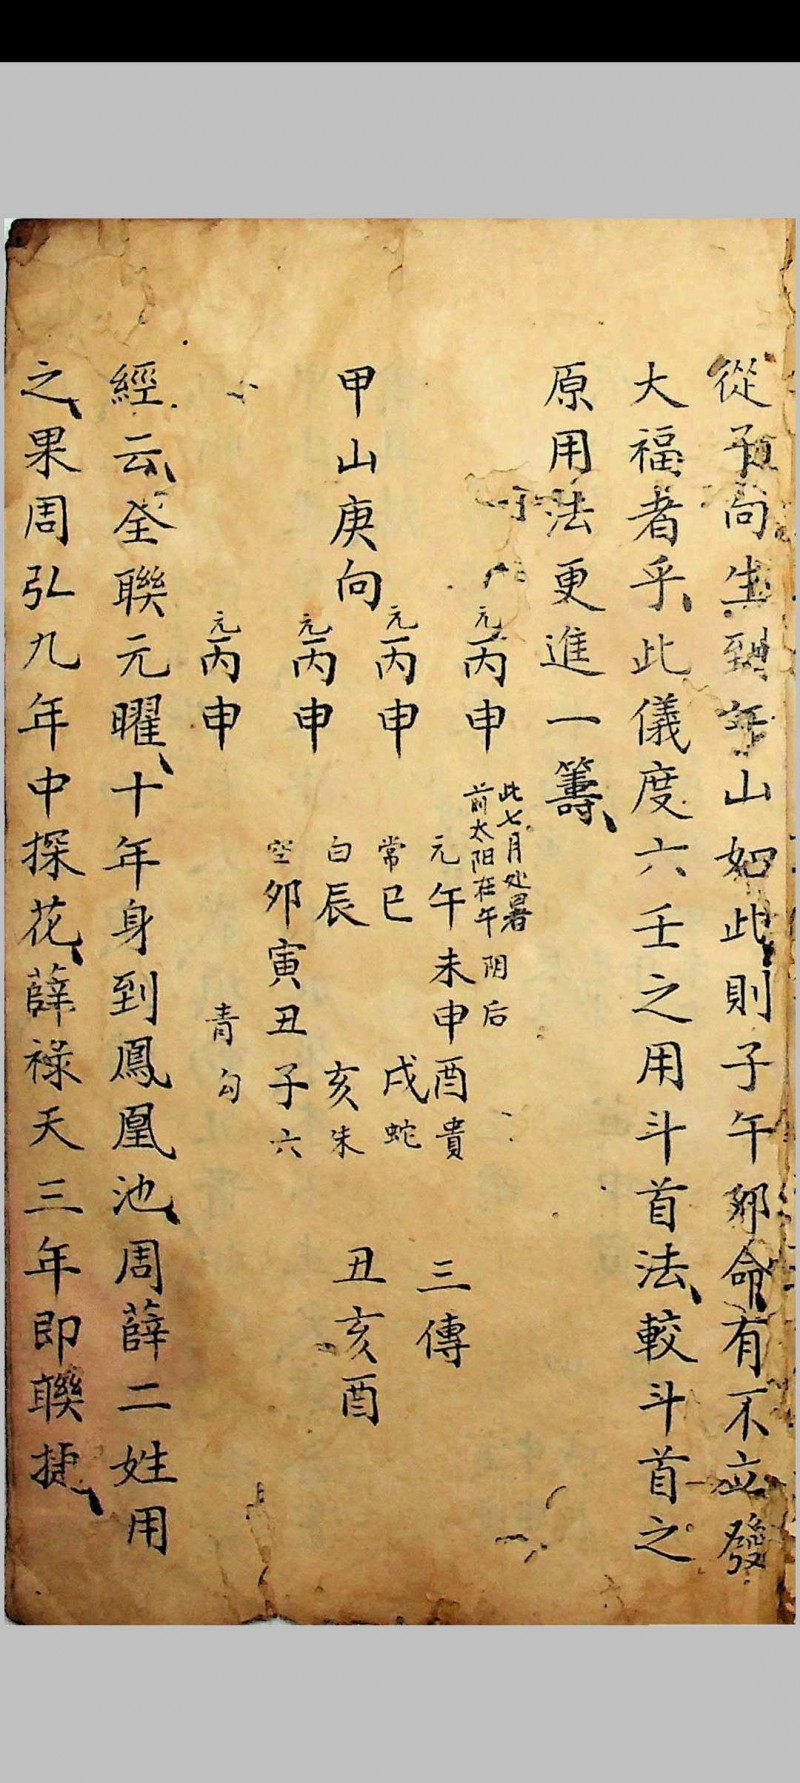 從子向生到午山如此則子午卯命有不立發
大福者乎此儀度六壬之用斗首法較斗首之
原用法更進一籌
甲山庚向
元丙申
元丙申
元丙申
元丙申
此七月处暑
前太阳在午
阴后
元午未申酉貴
常巳 戌蛇
白辰 亥朱
空卯寅丑子六
青勾
三傳
丑亥酉
經云全聯元曜十年身到鳳凰池周薛二姓用
之果周弘九年中探花薛祿天三年即聯捷